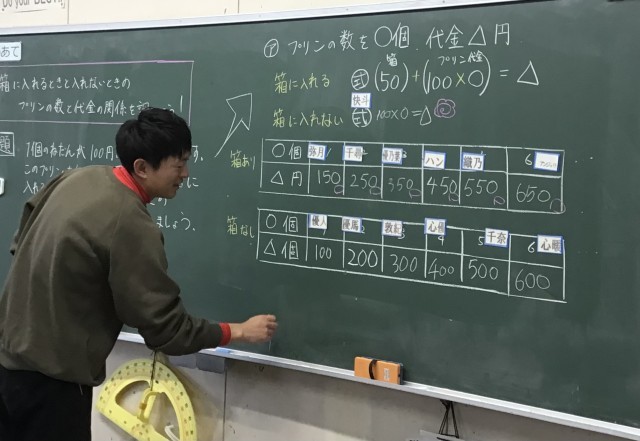 Do your BEST
めあて
箱に入れるときと入れないときの
プリンの数と代金の関係を
題
1個のねだんが100円
このプリン
入れ
ましょう。
㋐ プリンの数を○個、代金△円
箱 プリン代金
箱に入れる 式(50)+(100×○)=△
快斗
箱に入れない 式 100×○=△
箱あり ○個 弥月 千尋 ハン 織乃 6
△円 150 250 350 450 550 650
箱なし ○個 優人 優馬 敦紀 心脩 5 千奈 6 心雕
△個 100 200 300 400 500 600